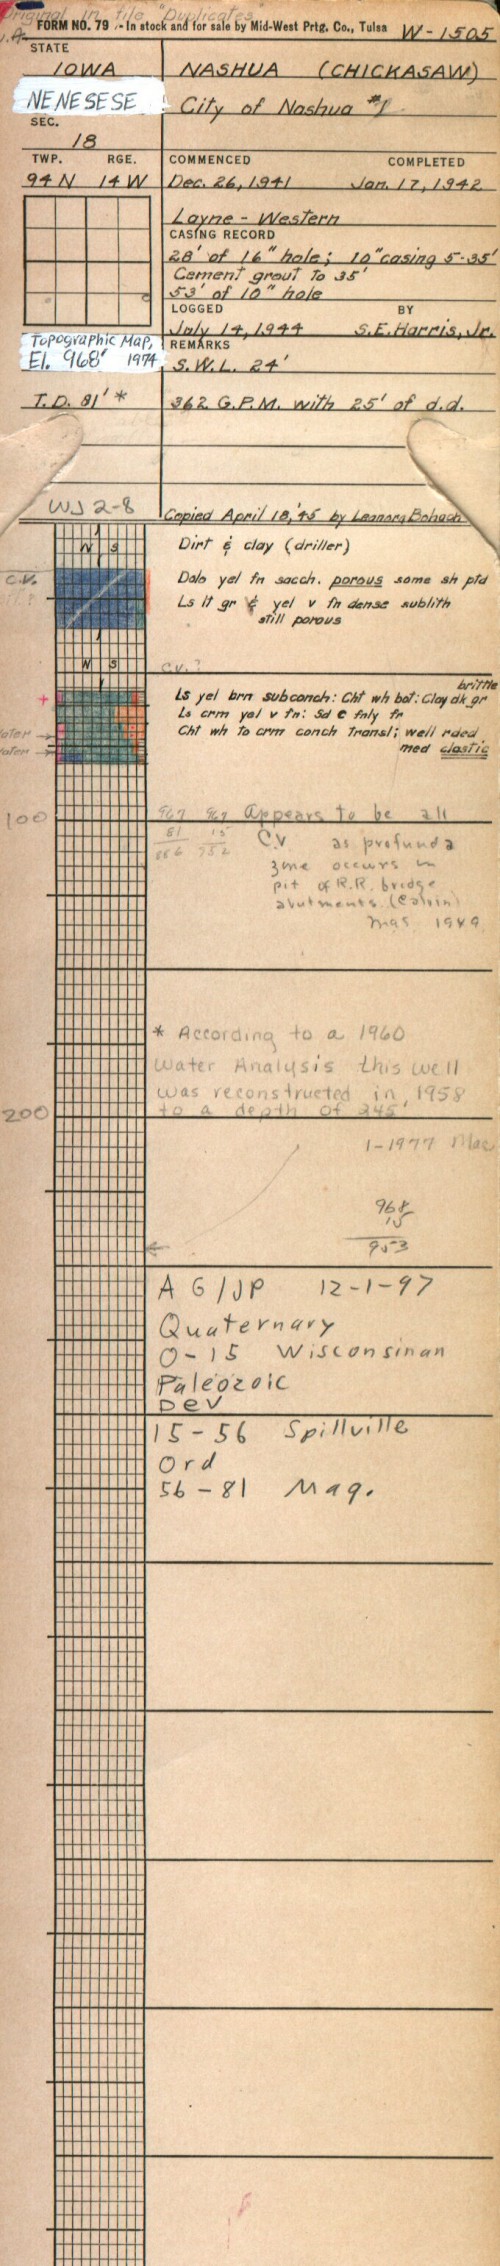 Original in file "Duplicates"
FORM NO. 79 - In stock and for sale by Mid-West Prtg. Co., Tulsa W-1505
STATE
IOWA NASHUA (CHICKASAW)
NENESESE City of Nashua #1
SEC.
18
TWP. RGE. COMMENCED COMPLETED
94 N 14 W Dec. 26, 1941 Jan. 17, 1942
Layne - Western
CASING RECORD
28' of 16" hole; 10" casing 5-35'
Cement grout to 35'
53' of 10" hole
LOGGED BY
July 14, 1944 S.E. Harris, Jr.
Topographic Map, REMARKS
El. 968' 1974 S.W.L. 24'
T.D. 81' * 362 G.P.M. with 25' of d.d.
WJ 2-8 Copied April 18, '45 by Leanora Bohach
N S Dirt & clay (driller)
C.V. Dolo yel fn sacch. porous some sh ptd
Ls lt gr & yel v fn dense sublith
still porous
N S C.V.?
brittle
+ Ls yel brn subconch: Cht wh bot: Clay dk gr
Ls crm yel v fn: Sd c fnly fr
water Cht wh to crm conch Transl; well rded
water med clastic
100 967 967 Appears to be all
81 15 C.V as profunda
886 952 zone occurs in
pit of R.R. bridge
abutments. (Calvin)
1949
* According to a 1960
Water Analysis this well
was reconstructed in 1958
200 to a depth of 245'
1-1977 Mac
968
15
953
A G/JP 12-1-97
Quaternary
0-15 Wisconsinan
Paleozoic
Dev
15-56 Spillville
Ord
56-81 Maq.